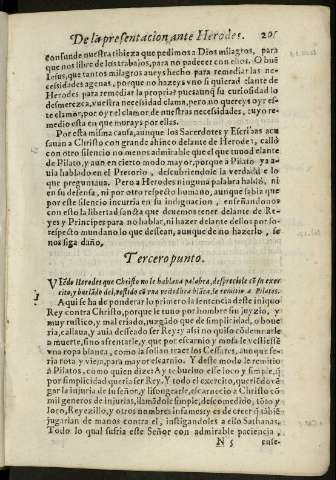 De la presentacion ante Herodes. 201
confunde nuestra tibieza que pedimos a Dios milagros, para
que nos libre de los trabajos, para no padecer con ellos. O buē
Iesus, que tantos milagros aueys hecho para remediar las ne-
cessidades agenas, porque no hazeys vno si quiera delante de
Herodes para remediar la propria? pues aunq̃ su curiosidad lo
desmerezca, vuestra necessidad clama, pero no quereys oyr es-
te clamor, por oyr el clamor de nuestras necessidades, cuyo re-
medio esta en que murays por ellas.
Por esta misma causa, aunque los Sacerdotes y Escribas acu
sauan a Christo con grande ahinco delante de Herodes, callò
con otro silencio no menos admirable que el que tuuo delante
de Pilato, y aun en cierto modo mayor, porque a Pilato ya a-
uia hablado en el Pretorio, descubriendole la verdad de lo
que preguntaua. Pero a Herodes ninguna palabra habló, ni
en su defensa, ni por otro respeto humano, aunque sabia que
por este silencio incurria en su indignacion, enseñandonos
con esto la libertad sancta que deuemos tener delante de Re-
yes y Principes para no hablar, ni hazer delante dellos por so-
respecto mundano lo que dessean, aunque de no hazerlo, se
nos siga daño.
Tercero punto.
VIēdo Herodes que Christo no le hablaua palabra, despreciole cō su exer
cito, y burlādo del, vestido cō vna vestidura blāca, le remitio a Pilatos.
Aqui se ha de ponderar lo primero la sentencia deste iniquo
Rey contra Christo, porque le tuuo por hombre sin juyzio, y
muy rustico, y mal criado, juzgādo que de simplicidad, o boue
ria, callaua, y auia desseado ser Rey: y assi no quiso cōdenarle
a muerte, sino afrentarle, y que por escarnio y mofa le vistiesse
vna ropa blanca, como la solian traer los Cessares, aunque se-
ria rota y vieja, para mayor escarnio. Y desse modo le remitio
a Pilatos, como quien dize: Ay te bueluo esse loco y simple, q̃
por simplicidad queria ser Rey. Y todo el exercito, queriēdo vē
gar la injuria de su señor, y lisongearle, escarnecio a Christo cō
mil generos de injurias, llamādole simple, descomedido, tōto y
loco, Reyezillo, y otros nombres infames; y es de creer q̃ tābiē
jugarian de manos contra el, instigandoles a ello Sathanas.
Todo lo qual sufria este Señor con admirable paciencia,
N 5 ense-